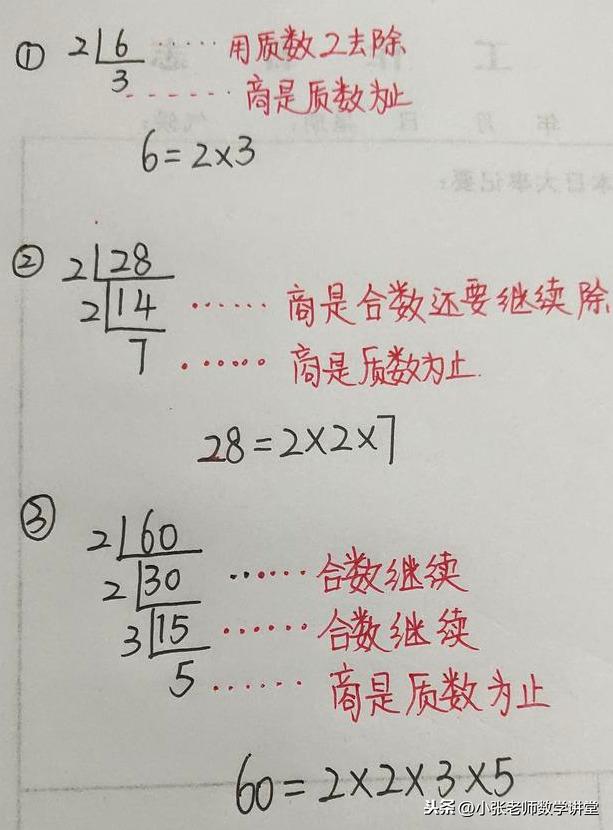 ① 2 6 ······ 用质数2去除
3 ······ 商是质数为止
6=2×3
② 2 28
2 14 ······ 商是合数还要继续除
7 ······ 商是质数为止.
28=2×2×7
③ 2 60
2 30 ······ 合数继续
3 15 ······ 合数继续
5 ······ 商是质数为止
60=2×2×3×5
头条@小张老师数学讲堂